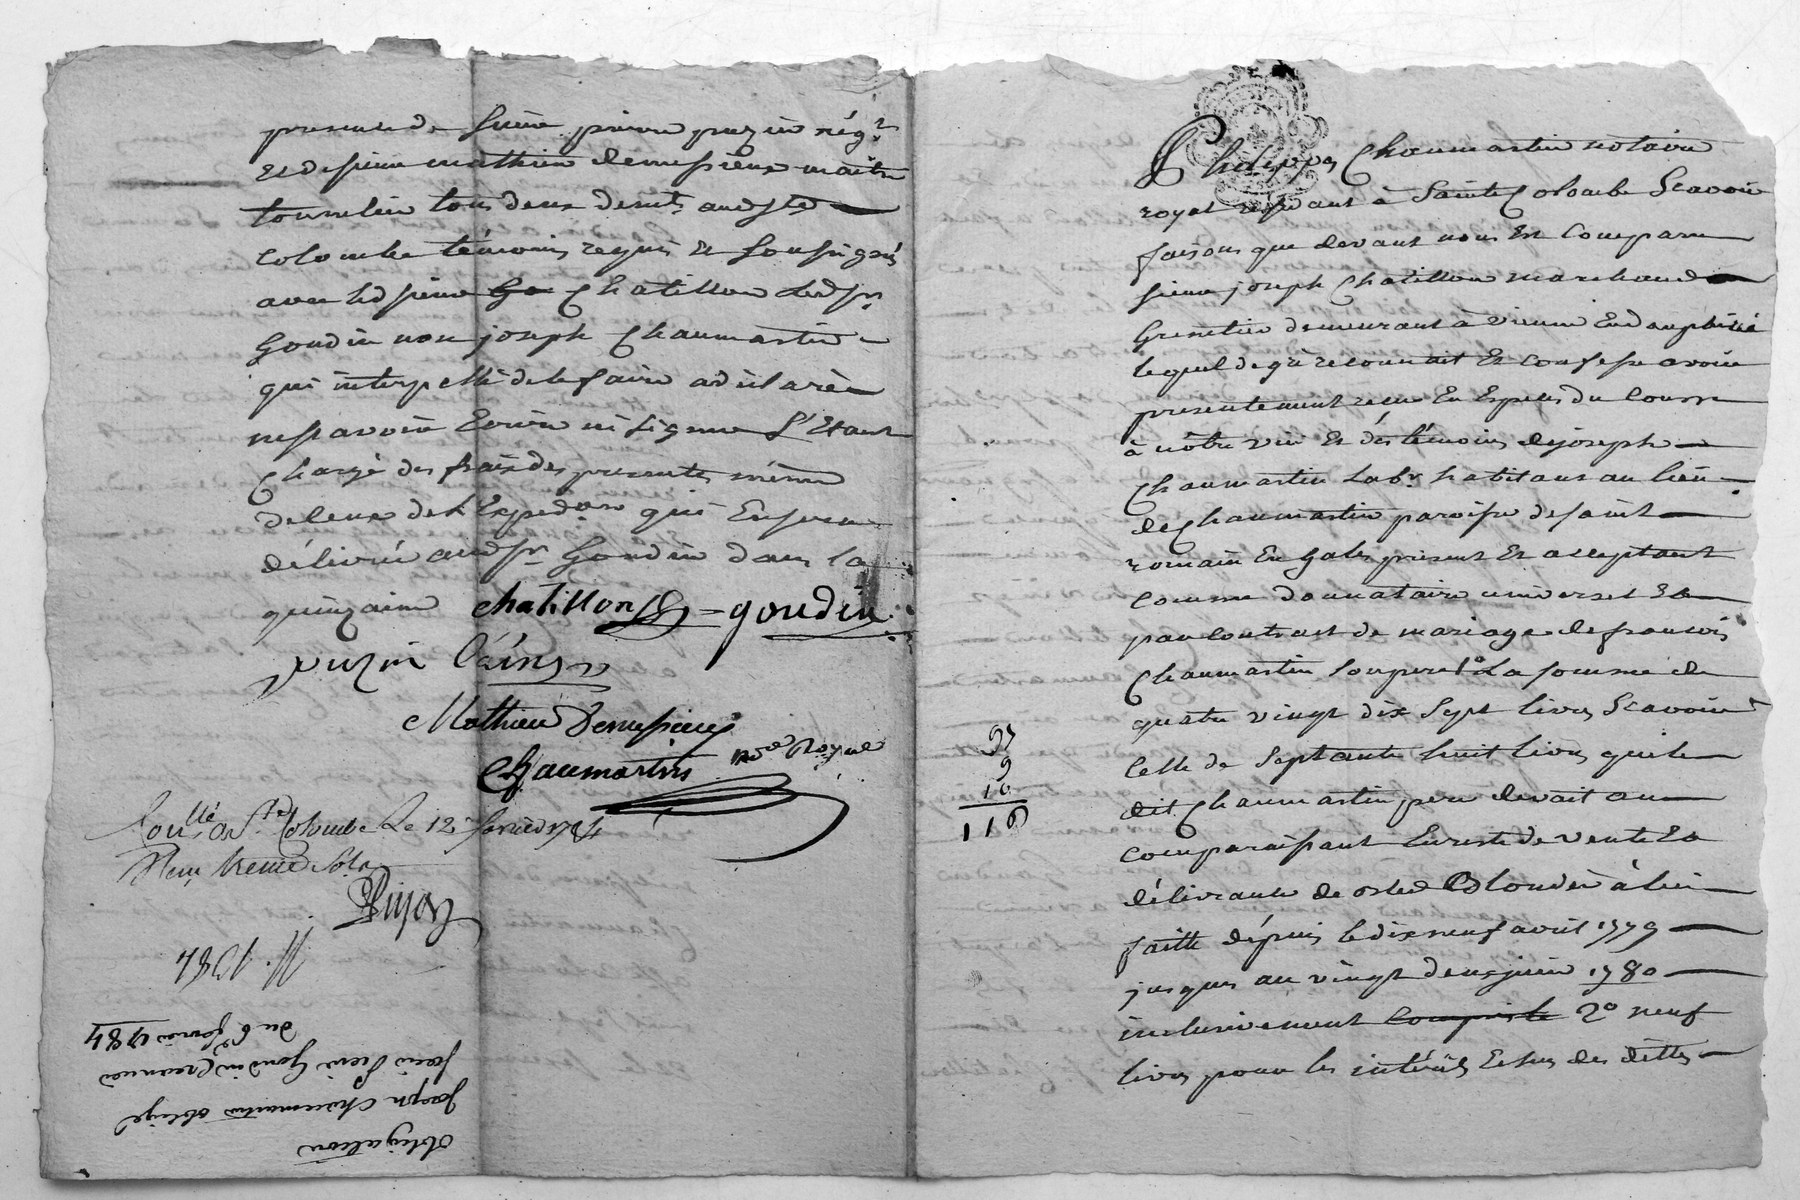 presence de sieur pierre puzin nég.t
et de sieur mathieu demessieux maitre
tonnelier tous deux de md.t
colombe témoins requis et soussignés
avec led sieur Chatillon led s.r
Goudin non joseph Chaumartin
qui interpellé de le faire a déclaré
ne savoir Ecrire ni signer s'étant
Chargé des frais des presentes même
de ceux de l'Expedon qui En sera
délivré aud s.r Goudin dans la
quinzaine chatillon goudin
puzin l'ainé
Mathieu Demessieux
Chaumartin no.re Royal
Conllé a S.te Colombe Le 12 fevrier 1784
Reçu treize sols
1784
obligation
joseph chaumartin obligé
sieur Goudin Creancier
du 6 fevrier 1784
Philippe Chaumartin notaire
royal residant à Sainte Colombe Scavoir
faisons que devant nous Est Comparu
sieur joseph Chatillon marchand
Grenetier demeurant à vienne En dauphiné
lequel de gré reconnait Et confesse avoir
presentement reçu En Especes du Cours
à nôtre vüe Et dés témoins de joseph
Chaumartin Lab.r habitant au lieu
de Chaumartin paroisse de saint
romain En Gales présent Et acceptant
comme donnataire universel
par Contract de mariage de francois
Chaumartin son pere 1o La somme de
quatre vingt dix Sept livres Scavoir
Celle de Septante huit livres que le
dit Chaumartin pere devait au
comparaissant Du reste de vente Et
délivrance de à lui
faitte dépuis le dix neuf avril 1779
jusques au vingt deux juin 1780
inclusivement compriste 2o neuf
livres pour les intérêts Echus des dittes
97
9
10
116